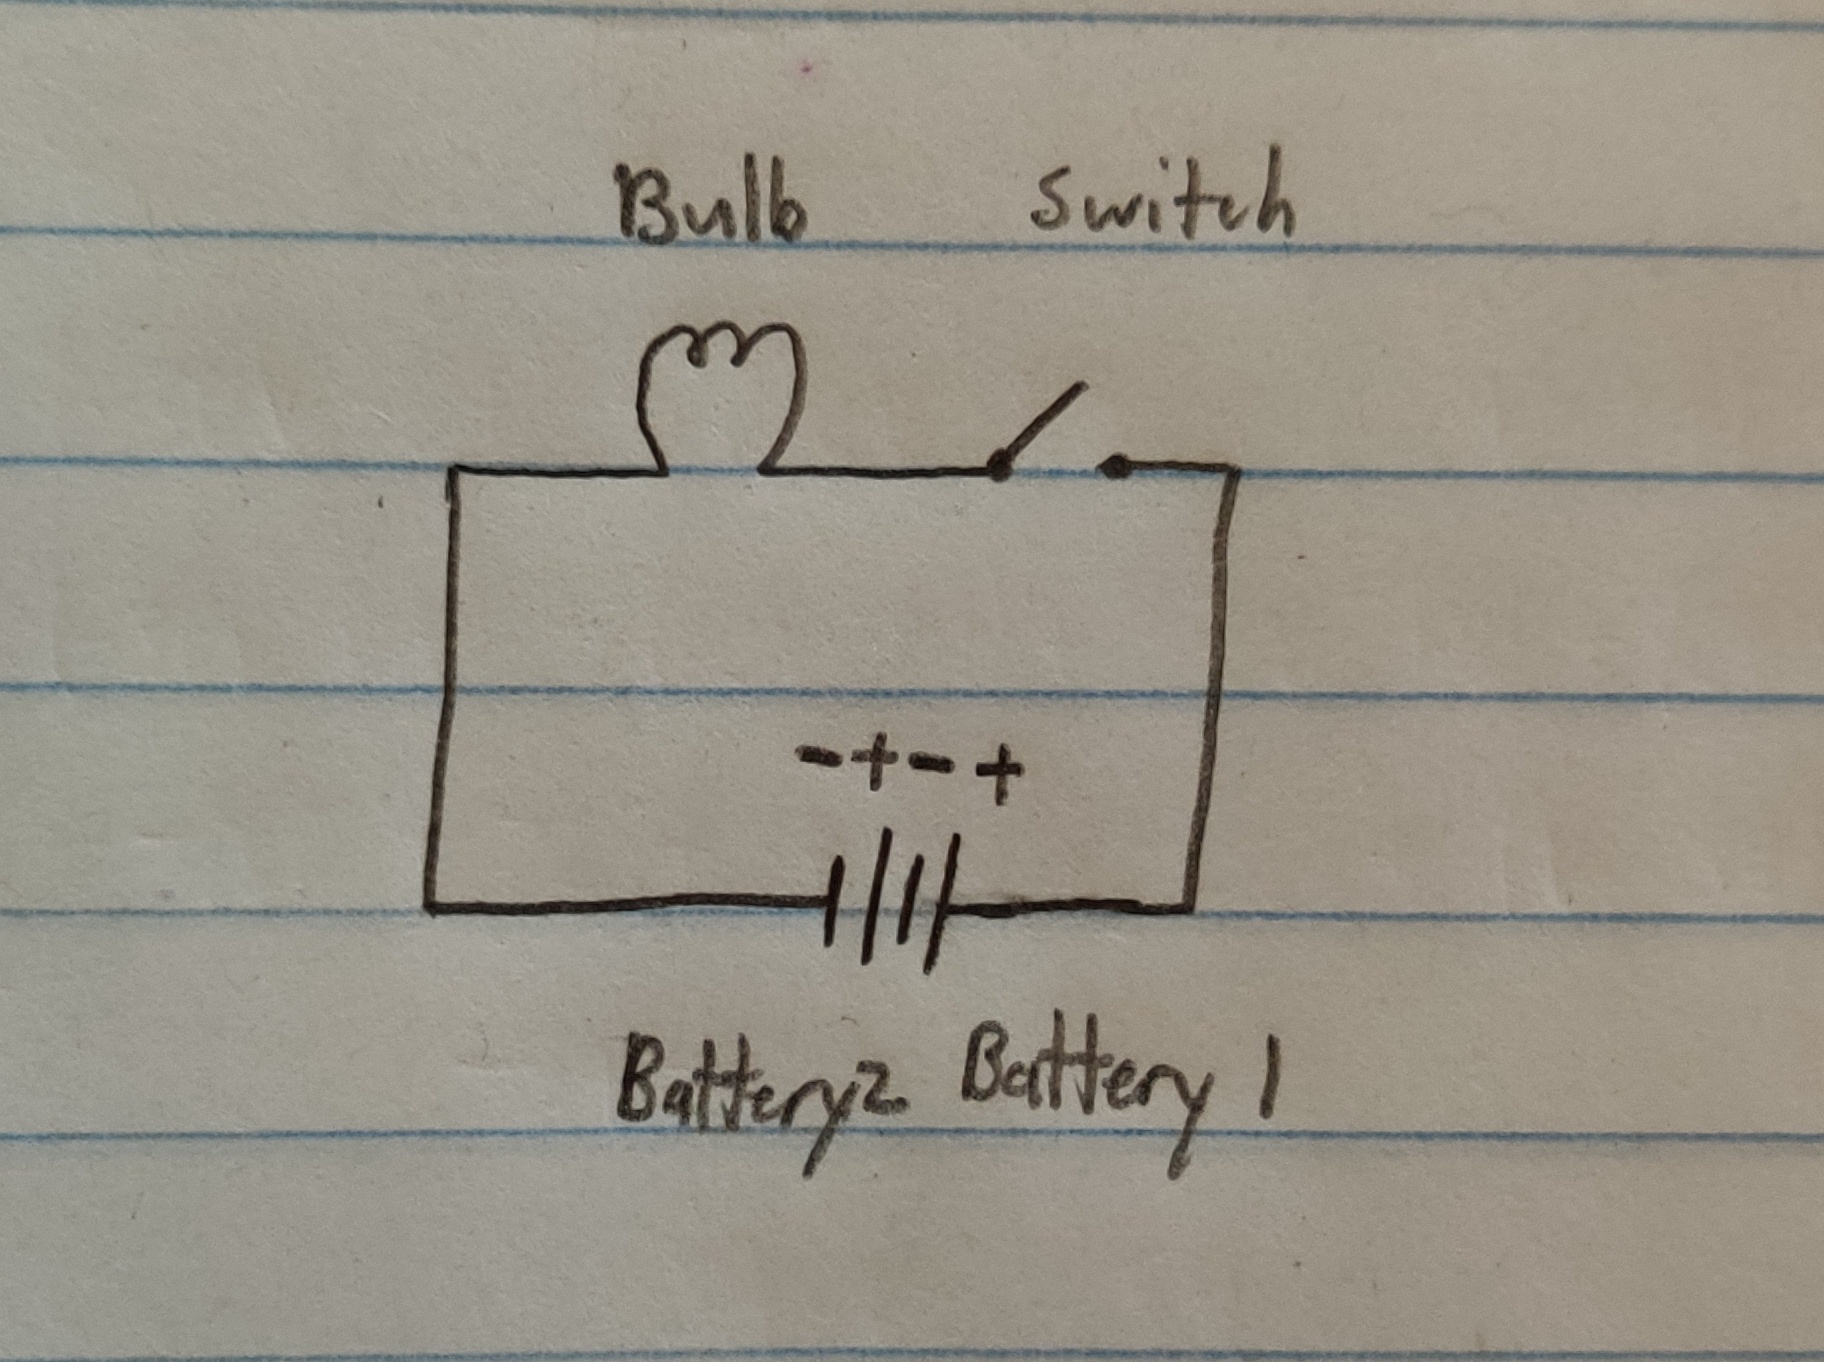 Bulb Switch
- + - +
Battery2 Battery 1